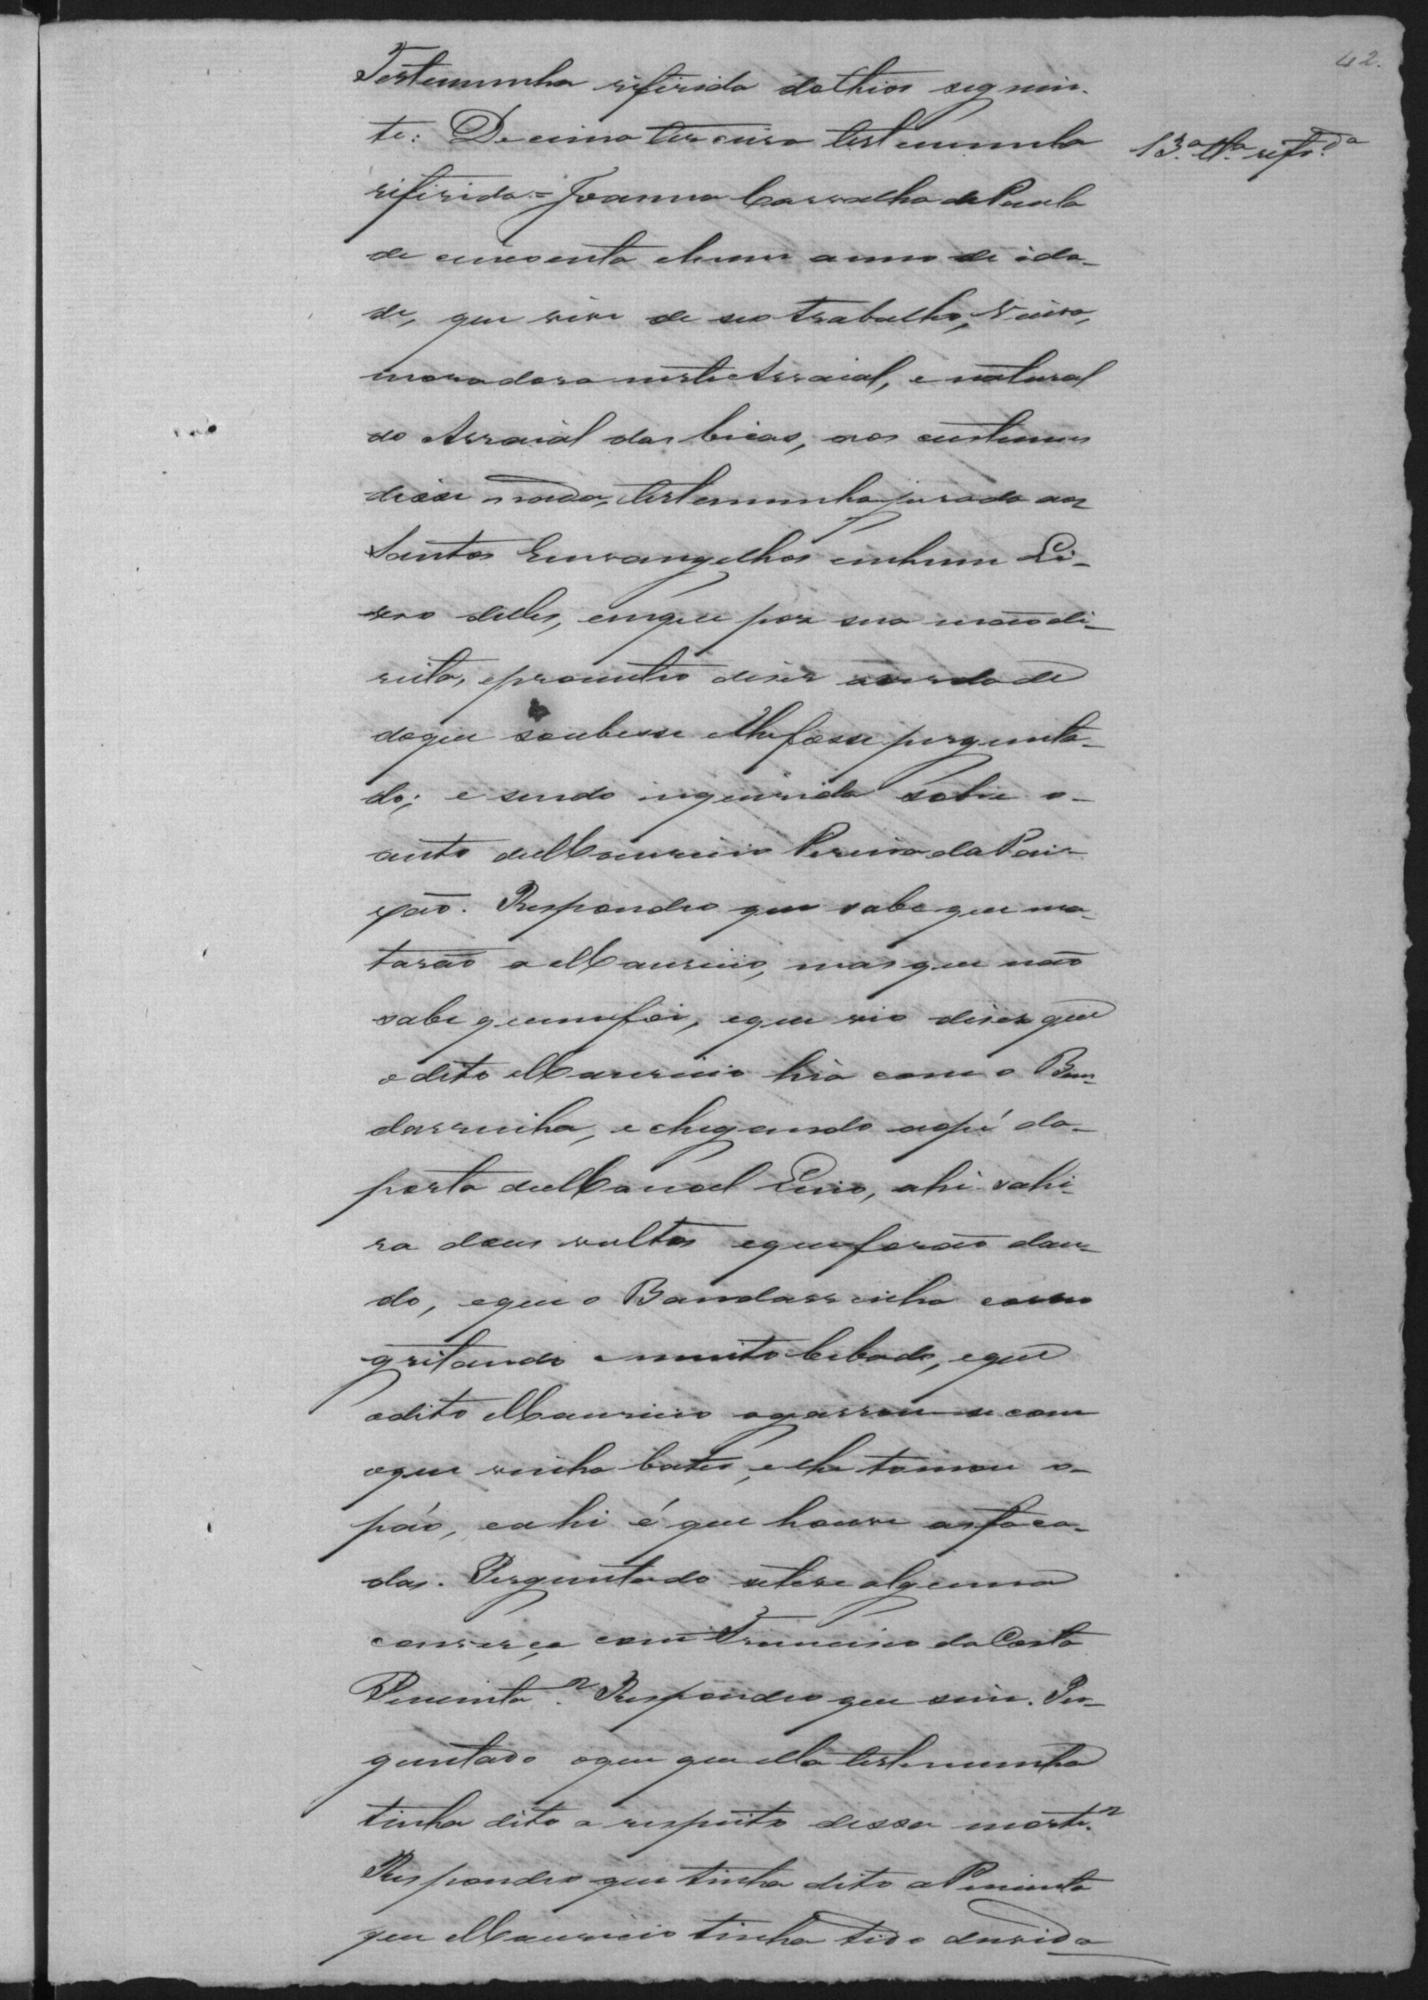 42.
Testemunha referida do thior seguin-
te: Decima terceira testemunha
13.ª tt.ª refr.da
referida = Joanna Carvalho de Paula
de cincoenta e hum anno de ida-
de, que vive de seo trabalho, viuva,
moradora neste Arraial, e natural
do Arraial das bicas, aos custumes
disse nada, testemunha jurada aos
Santos Euvangelhos em hum Li-
vro delles, em que pos sua mão di-
reita, e prometeo diser a verdade
do que soubesse e lhe fosse pergunta-
do; e sendo inquirida sobre o
auto de Mauricio Pereira da Pai-
xão. Respondeo que sabe que ma-
tarão a Mauricio, mas que não
sabe quem foi, e que vio diser que
o dito Mauricio hia com o Ban-
darrinha, e chegando aqui da
porta de Manoel Lino, ahi sahi-
ra dous vultos e que forão dan-
do, e que o Bandarrinha correo
gritando e muito bebado, e que
o dito Mauricio agarrou-se com
o que vinha bater, e lhe tomou o
páo, e ahi é que houve as faca-
das. Perguntado se teve alguma
converça com Francisco da Costa
Pimenta? Respondeo que sim. Per-
guntado o que que ella testemunha
tinha dito a respeito dessa morte?
Respondeo que tinha dito a Pimenta
que Mauricio tinha tido duvida